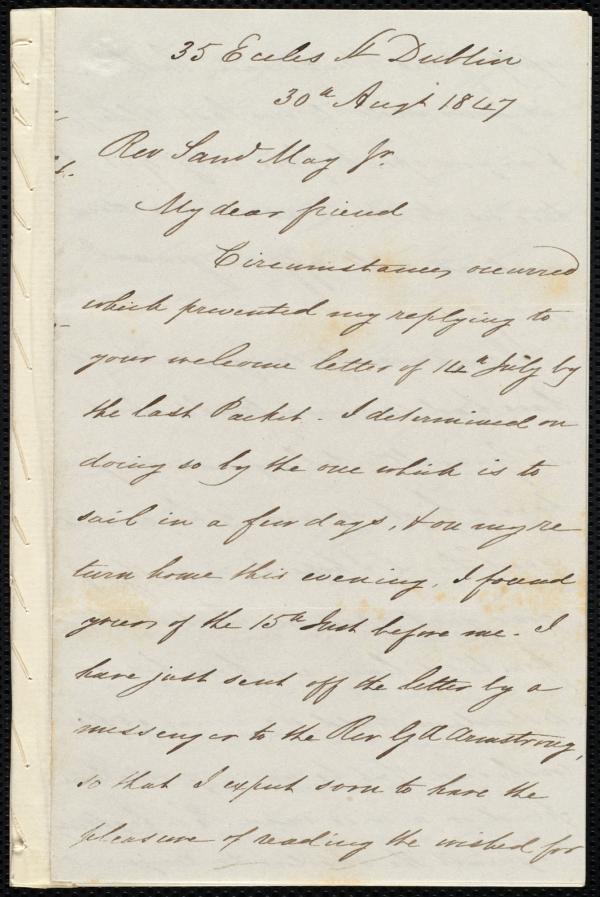 35 Eccles St Dublin
30th Augt 1847
Rev Saml May Jr.
My dear friend
Circumstances occurred
which prevented my replying to
your welcome letter of 14th July by
the last Packet - I determined on
doing so by the one which is to
sail in a few days, & on my re
turn home this evening, I found
yours of the 15th Inst before me - I
have just sent off the letter by a
messenger to the Rev G A Armstrong,
so that I expect soon to have the
pleasure of reading the wished for